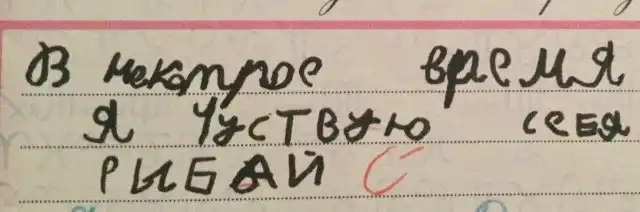 В некотрое время
я чуствую себя
РЫБАЙ С